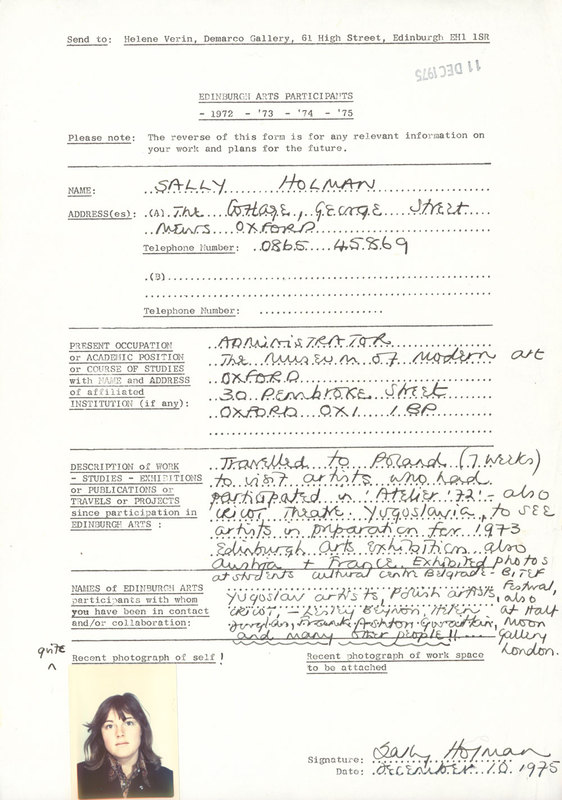 Send to: Helene Verin, Demarco Gallery, 61 High Street, Edinburgh EH1 1SR
11 DEC 1975
EDINBURGH ARTS PARTICIPANTS
- 1972 - '73 - '74 - '75
Please note: The reverse of this form is for any relevant information on
your work and plans for the future.
NAME: SALLY HOLMAN
ADDRESS(es): (A) The Cottage, George Street
Mews OXFORD
Telephone Number: 0865 45869
(B)
Telephone Number:
PRESENT OCCUPATION ADMINISTRATOR
or ACADEMIC POSITION The Museum of Modern art
or COURSE OF STUDIES OXFORD
with NAME and ADDRESS 30 Pembroke Street
of affiliated OXFORD OX1 1BP
INSTITUTION (if any):
DESCRIPTION of WORK Travelled to Poland (7 weeks)
- STUDIES - EXHIBITIONS to visit artists who had
or PUBLICATIONS or participated in 'Atelier '72' - also
TRAVELS or PROJECTS Cricot Theatre. Yugoslavia, to see
since participation in artists in preparation for 1973
EDINBURGH ARTS : Edinburgh Arts exhibition also
Austria + France. Exhibited photos
at students cultural centre Belgrade - BITEF
Festival,
also
at Half
Moon
Gallery
London.
NAMES OF EDINBURGH ARTS Yugoslav artists, Polish artists,
participants with whom Cricot, - Lesley
you have been in contact
and/or collaboration: and many other people!!
quite
Recent photograph of self! Recent photograph of work space
to be attached
Signature: Sally Holman
Date: DECEMBER 10 1975